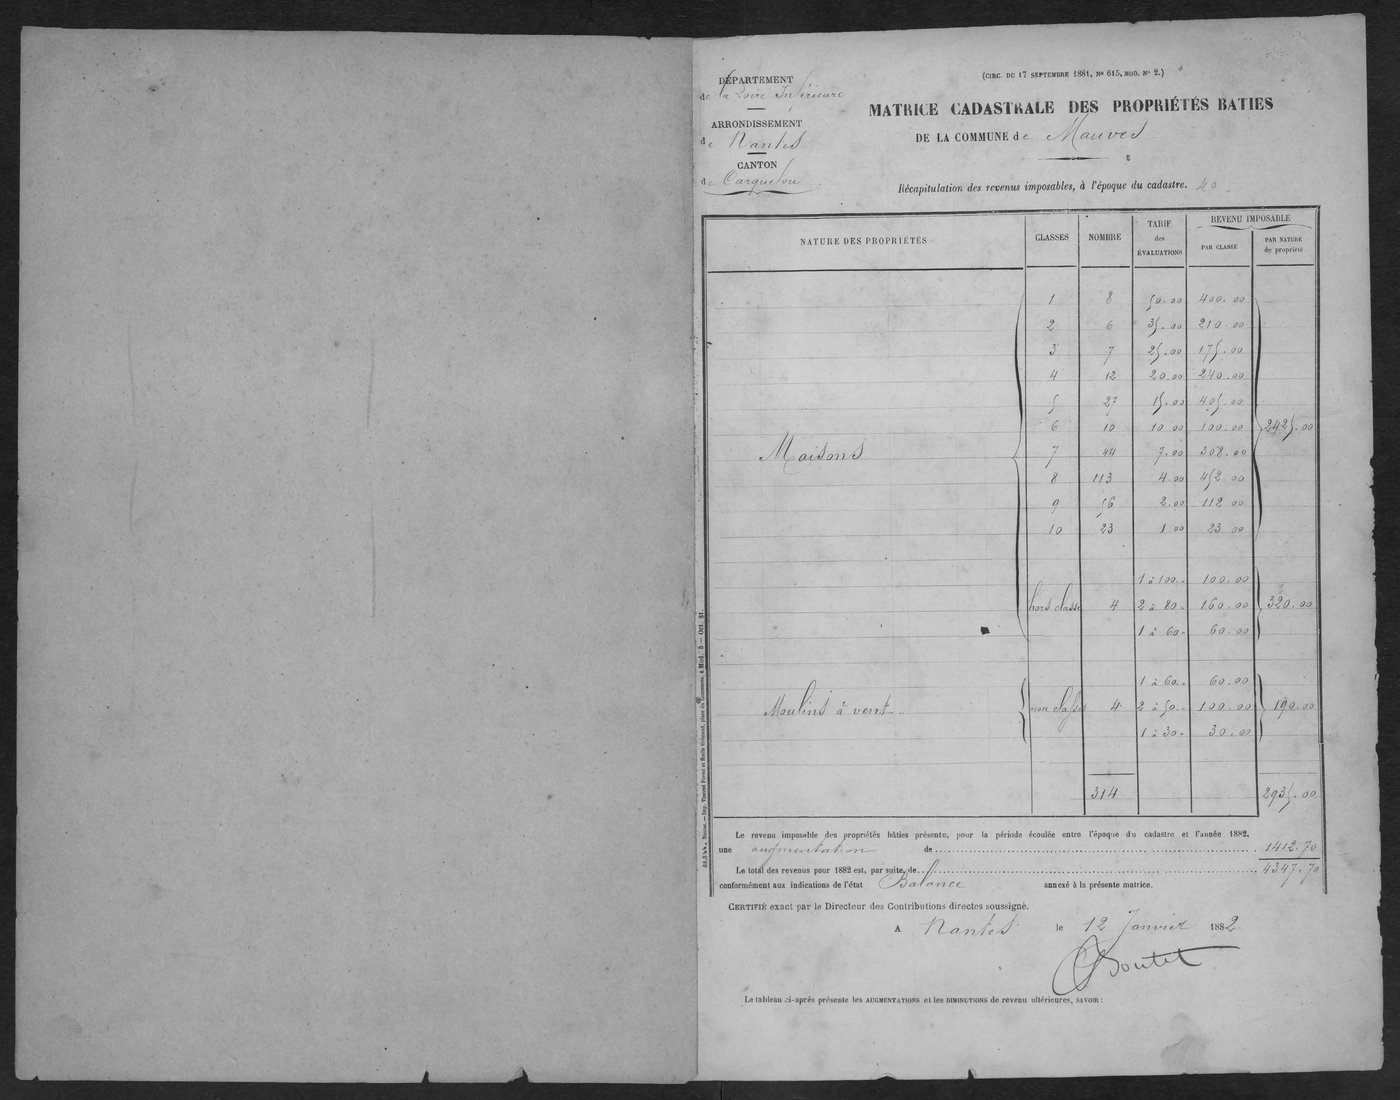 DÉPARTEMENT
de la Loire Inférieure
ARRONDISSEMENT
de Nantes
CANTON
de Carquefou
(CIRC. DU 17 SEPTEMBRE 1881, No 615, MOD. No 2.)
MATRICE CADASTRALE DES PROPRIÉTÉS BATIES
DE LA COMMUNE de Mauves
Récapitulation des revenus imposables, à l'époque du cadastre. 40
NATURE DES PROPRIÉTÉS CLASSES NOMBRE TARIF des ÉVALUATIONS REVENU IMPOSABLE PAR CLASSE PAR NATURE de propriété
1 8 50.00 400.00
2 6 35.00 210.00
3 7 25.00 175.00
4 12 20.00 240.00
5 27 15.00 405.00
6 10 10 00 100.00 2425.00
Maisons 7 44 7.00 308.00
8 113 4.00 452.00
9 56 2.00 112 00
10 23 1 00 23 00
1 à 100.- 100.00
hors classe 4 2 à 80- 160.00 320.00
1 à 60- 60.00
1 à 60.- 60.00
Moulins à vent non classés 4 2 à 50.- 100.00 190.00
1 à 30- 30.00
314 2935.00
Le revenu imposable des propriétés bâties présente, pour la période écoulée entre l'époque du cadastre et l'année 1882,
une augmentation de 1412.70
Le total des revenus pour 1882 est, par suite, de 4347.70
conformément aux indications de l'état Balance annexé à la présente matrice.
CERTIFIÉ exact par le Directeur des Contributions directes soussigné.
A Nantes le 12 Janvier 1882.
Boutet
Le tableau ci-après présente les AUGMENTATIONS et les DIMINUTIONS de revenu ultérieures, SAVOIR :